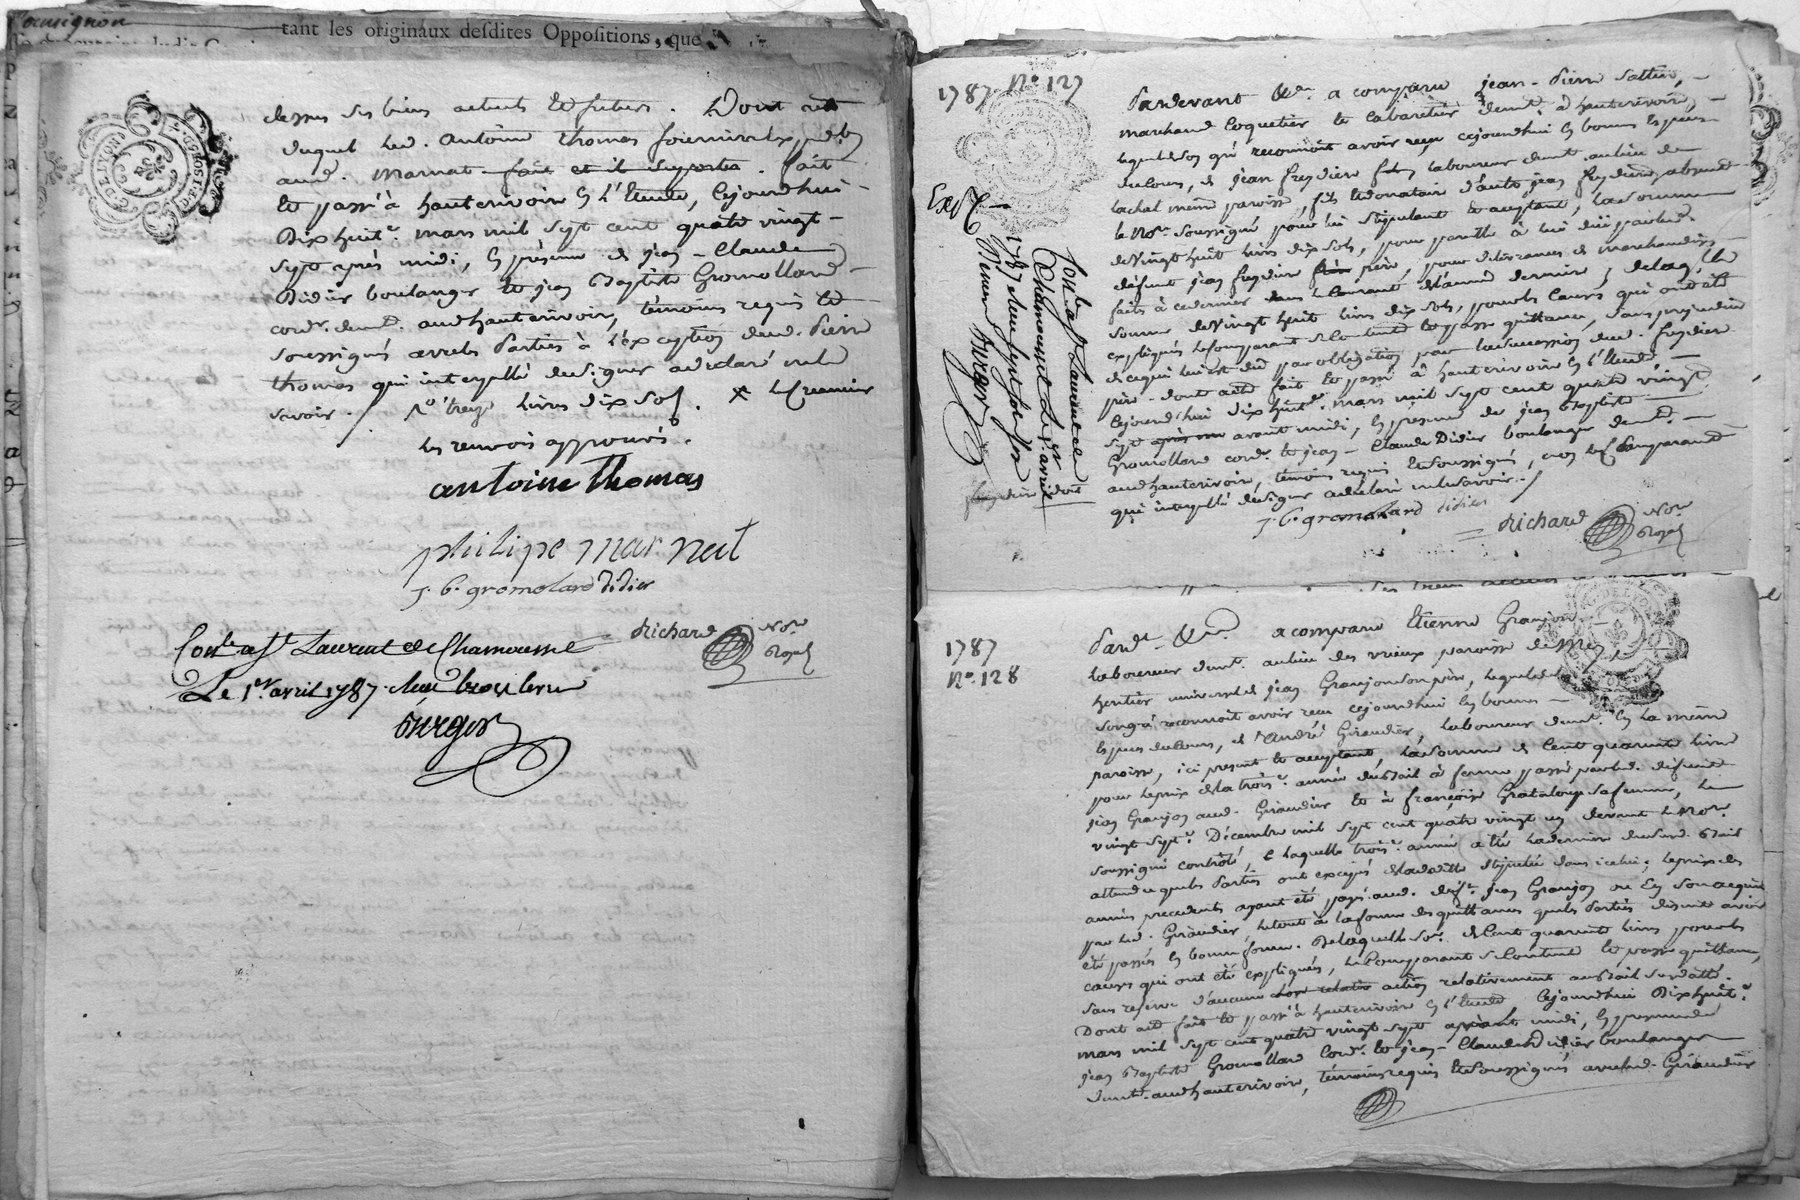 tant les originaux desdites Oppositions, que
dessus ses biens actuels et futurs. Dont acte
duquel led. antoine thomas fournira Exp.
aud. Marnat fait et il suportera. fait
et passé à hauterivoire En l'Etude, Cejourdhui
Dixhuit mars mil sept cent quatre vingt
sept après midi, En présence de jean-Claude
Didier boulanger et jean Baptiste Gromollard
cord.r demt. aud hauterivoire, témoins requis et
soussignés avec les Parties à l'exception dud. Pierre
thomas qui interpellé de signer a déclaré ne le
savoir. treize livres dix sols. x
les renvois approuvés.
antoine Thomas
philipe mar nat
j. b. gromolard didier
Richard Nore Royal
Con.lé a St Laurent de Chamousset
Le 1er avril 1787. Reçu
Durger
1787 No. 127
Exp.é
Pardevant &a. a comparu jean-Pierre
marchand Coquetier et cabaretier demt. à hauterivoire,
lequel de son gré reconnoit avoir reçu cejourdhui En bonnes Espèces
du cours, de jean freydier fils laboureur demt. au lieu de
lachal même paroisse, fils et donataire d'autre jean freydier, absent
le Nore. soussigné pour lui stipulant et acceptant, la somme
de Vingt huit livres dix sols, pour pareille à lui düe par led.
défunt jean freydier père, pour délivrances de marchandises
faites à ce dernier dans le Courant de l'année dernière, de laquelle
somme de Vingt huit livres dix sols, pour les Causes qui ont été
expliquées le Comparant se Contente et passe quittance, sans préjudice
de ce qui lui est dû par obligation par la succession dud. freydier
père. dont acte fait et passé à hauterivoire En l'Etude
Cejourd'hui dix huit mars mil sept cent quatre vingt
sept avant midi, En présence de jean Baptiste
Gromollard cord.r et jean-Claude Didier boulanger demt.
aud hauterivoire, témoins requis et soussignés, non led Comparant
qui interpellé de signer a déclaré ne le savoir.
j. b. gromolard didier
Richard Nore Royal
Con.lé a St Laurent de
Chamousset Le 1er avril
1787 Reçu sept sols six
Durger
1787
No. 128
Pard.t &a. a comparu Etienne Granjon
laboureur demt. au lieu des vrieux paroisse de
heritier universel de jean Granjon son père, lequel de
son gré reconnoit avoir reçu cejourdhui En bonnes
Espèces du cours, de André Giraudier, laboureur demt. En la même
paroisse, ici present et acceptant, la somme de Cent quarante livres
pour le prix de la trois.e année du Bail à ferme passé par led. defunt
jean Granjon aud. Giraudier et à françoise Grataloup sa femme, le
vingt sept Décembre mil sept cent quatre vingt un devant le Nore.
soussigné contrôlé, de laquelle trois.e année a été la dernière dud. Bail
attendu que les Parties ont excepté de la stipulée dans icelui; le prix des
années precedentes ayant été payé aud. deft. jean Granjon ou En son acquit
par led. Giraudier, le tout à la forme des quittances que les Parties disent avoir
été passées En bonne forme. De laquelle som.e de Cent quarante livres pour les
causes qui ont été expliquées, le Comparant se Contente et passe quittance,
sans reserve d'aucune action relativement au Bail susdatté.
Dont acte fait et passé à hauterivoire En l'Etude, Cejourdhui Dixhuit
mars mil sept cent quatre vingt sept avant midi, En presence de
jean Baptiste Gromollard Cord.r et jean-Claude Didier boulanger
demt. aud hauterivoire, témoins requis et soussignés avec led. Giraudier